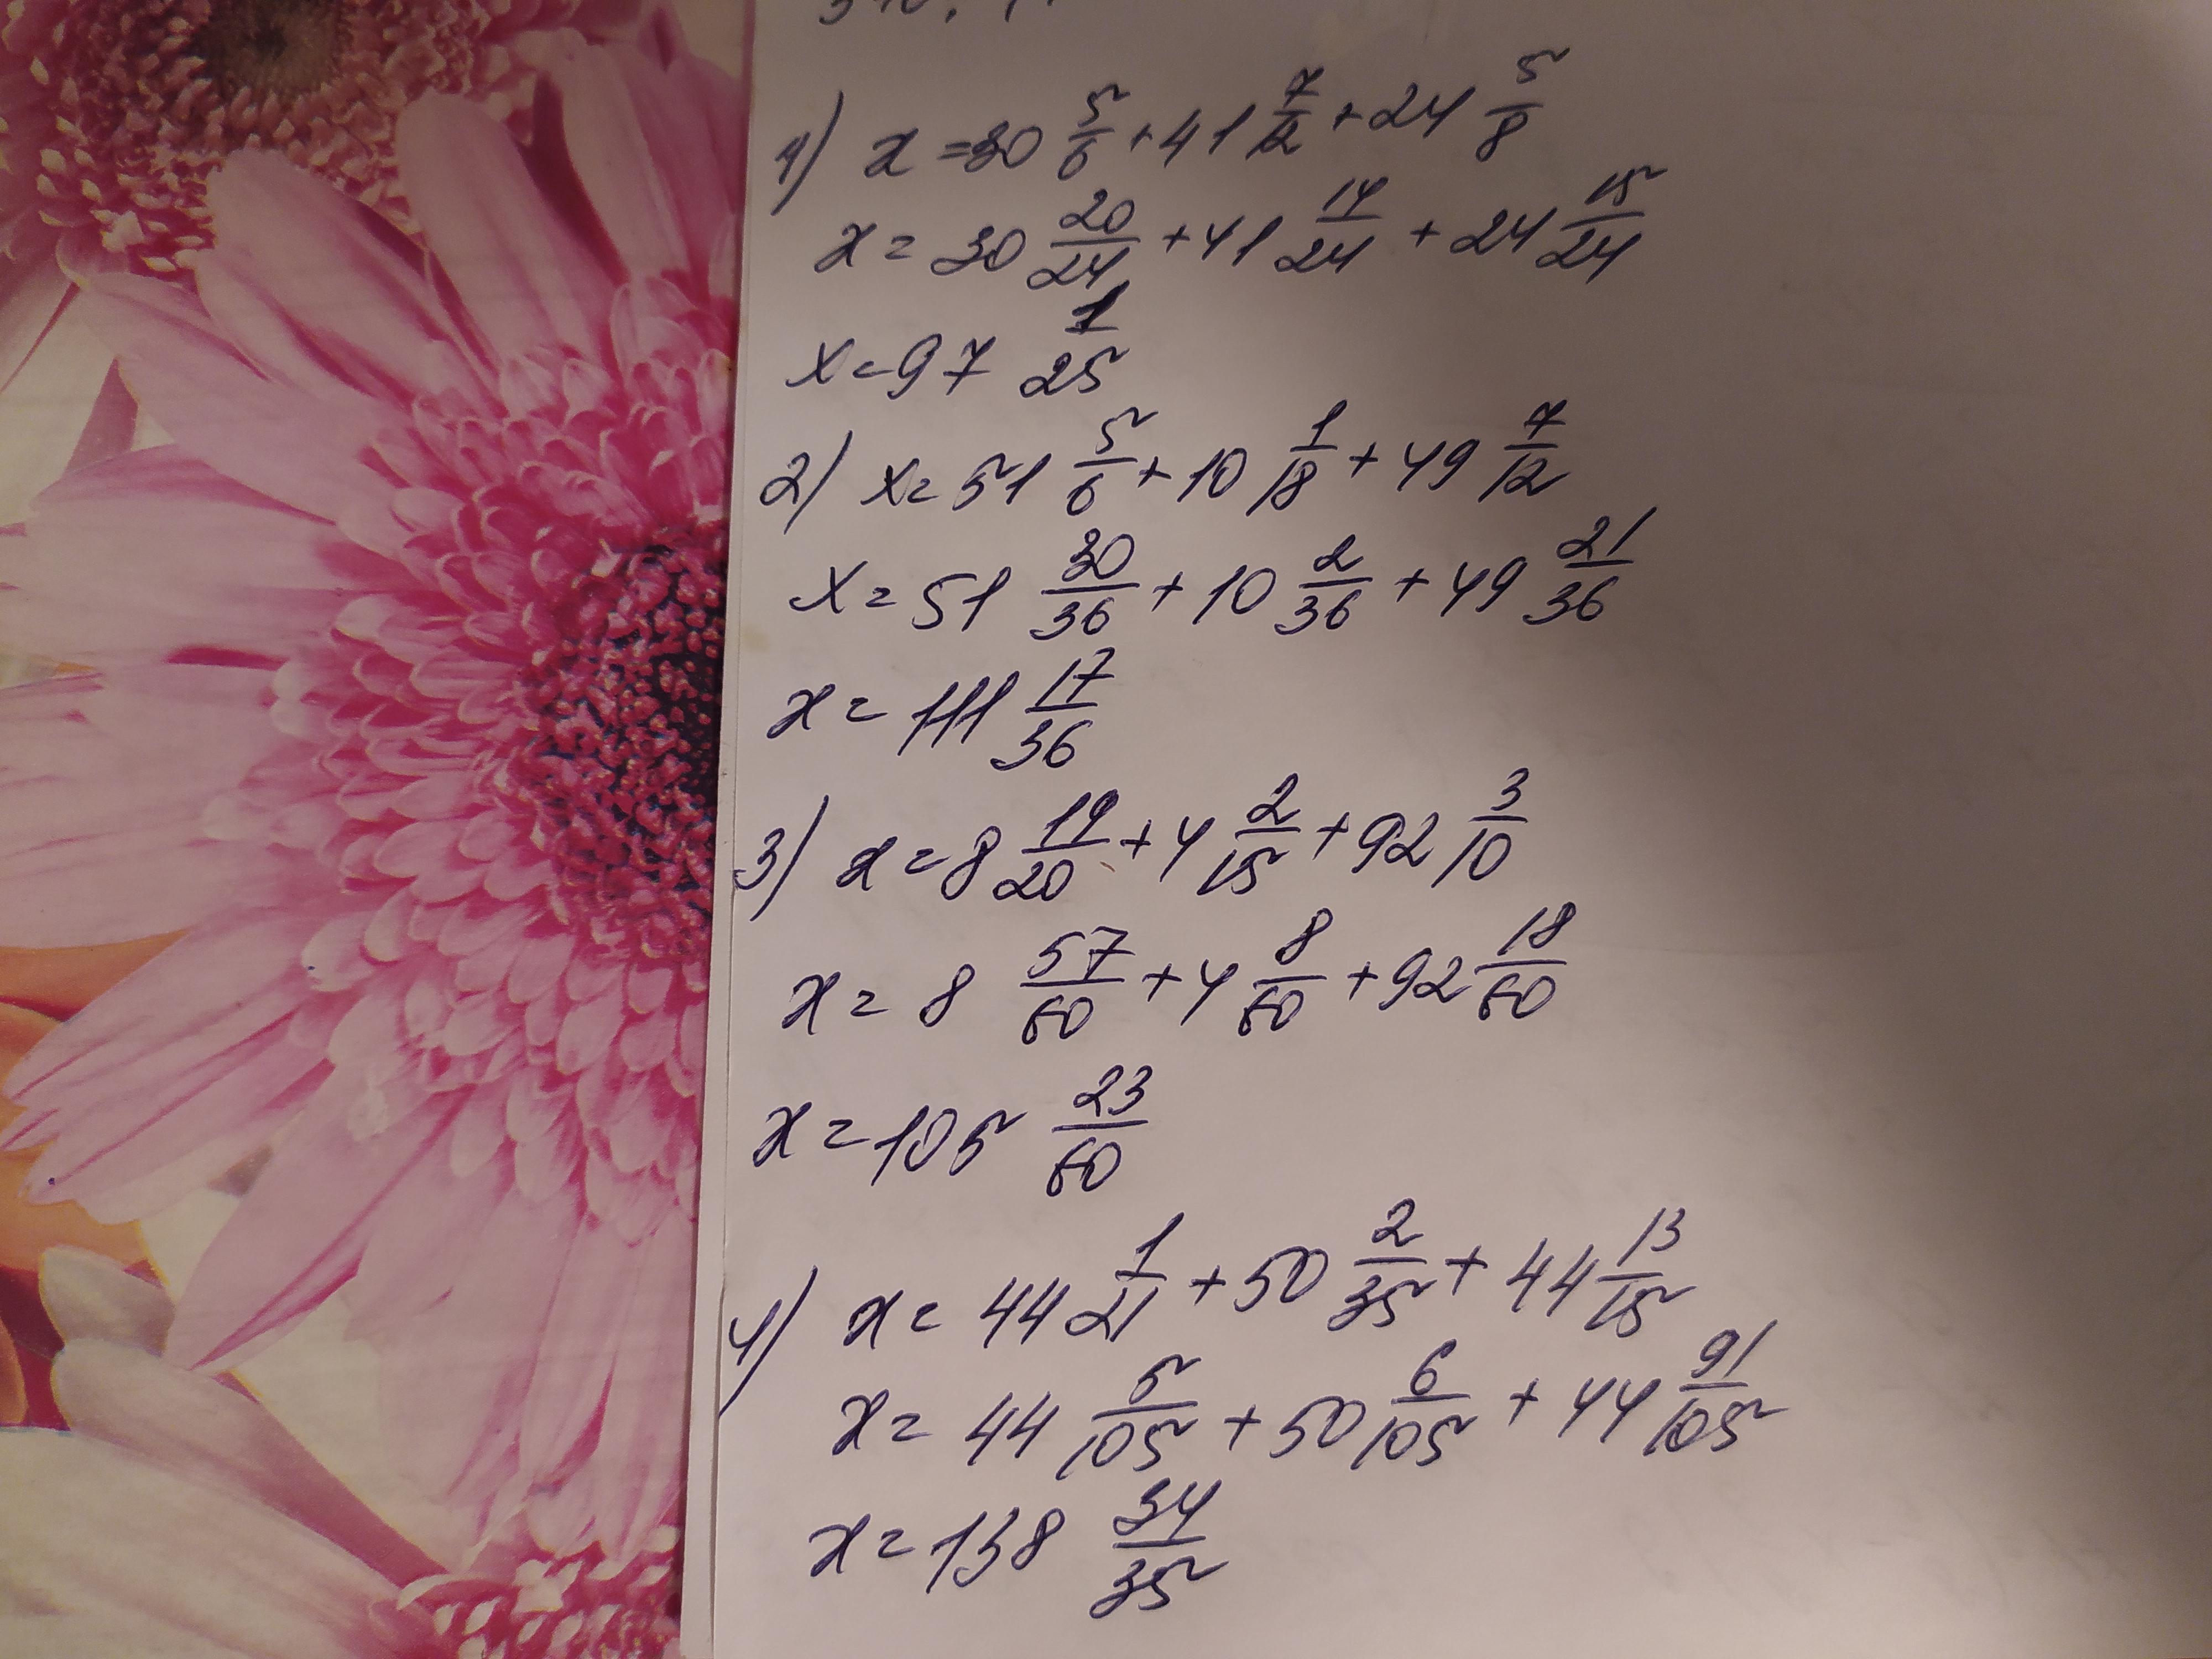 1) x = 30 5/6 + 41 7/12 + 24 5/8
x = 30 20/24 + 41 14/24 + 24 15/24
x = 97 1/25
2) x = 51 5/6 + 10 1/18 + 49 7/12
x = 51 30/36 + 10 2/36 + 49 21/36
x = 111 17/36
3) x = 8 19/20 + 4 2/15 + 92 3/10
x = 8 57/60 + 4 8/60 + 92 18/60
x = 105 23/60
4) x = 44 1/21 + 50 2/35 + 44 13/15
x = 44 5/105 + 50 6/105 + 44 91/105
x = 138 34/35